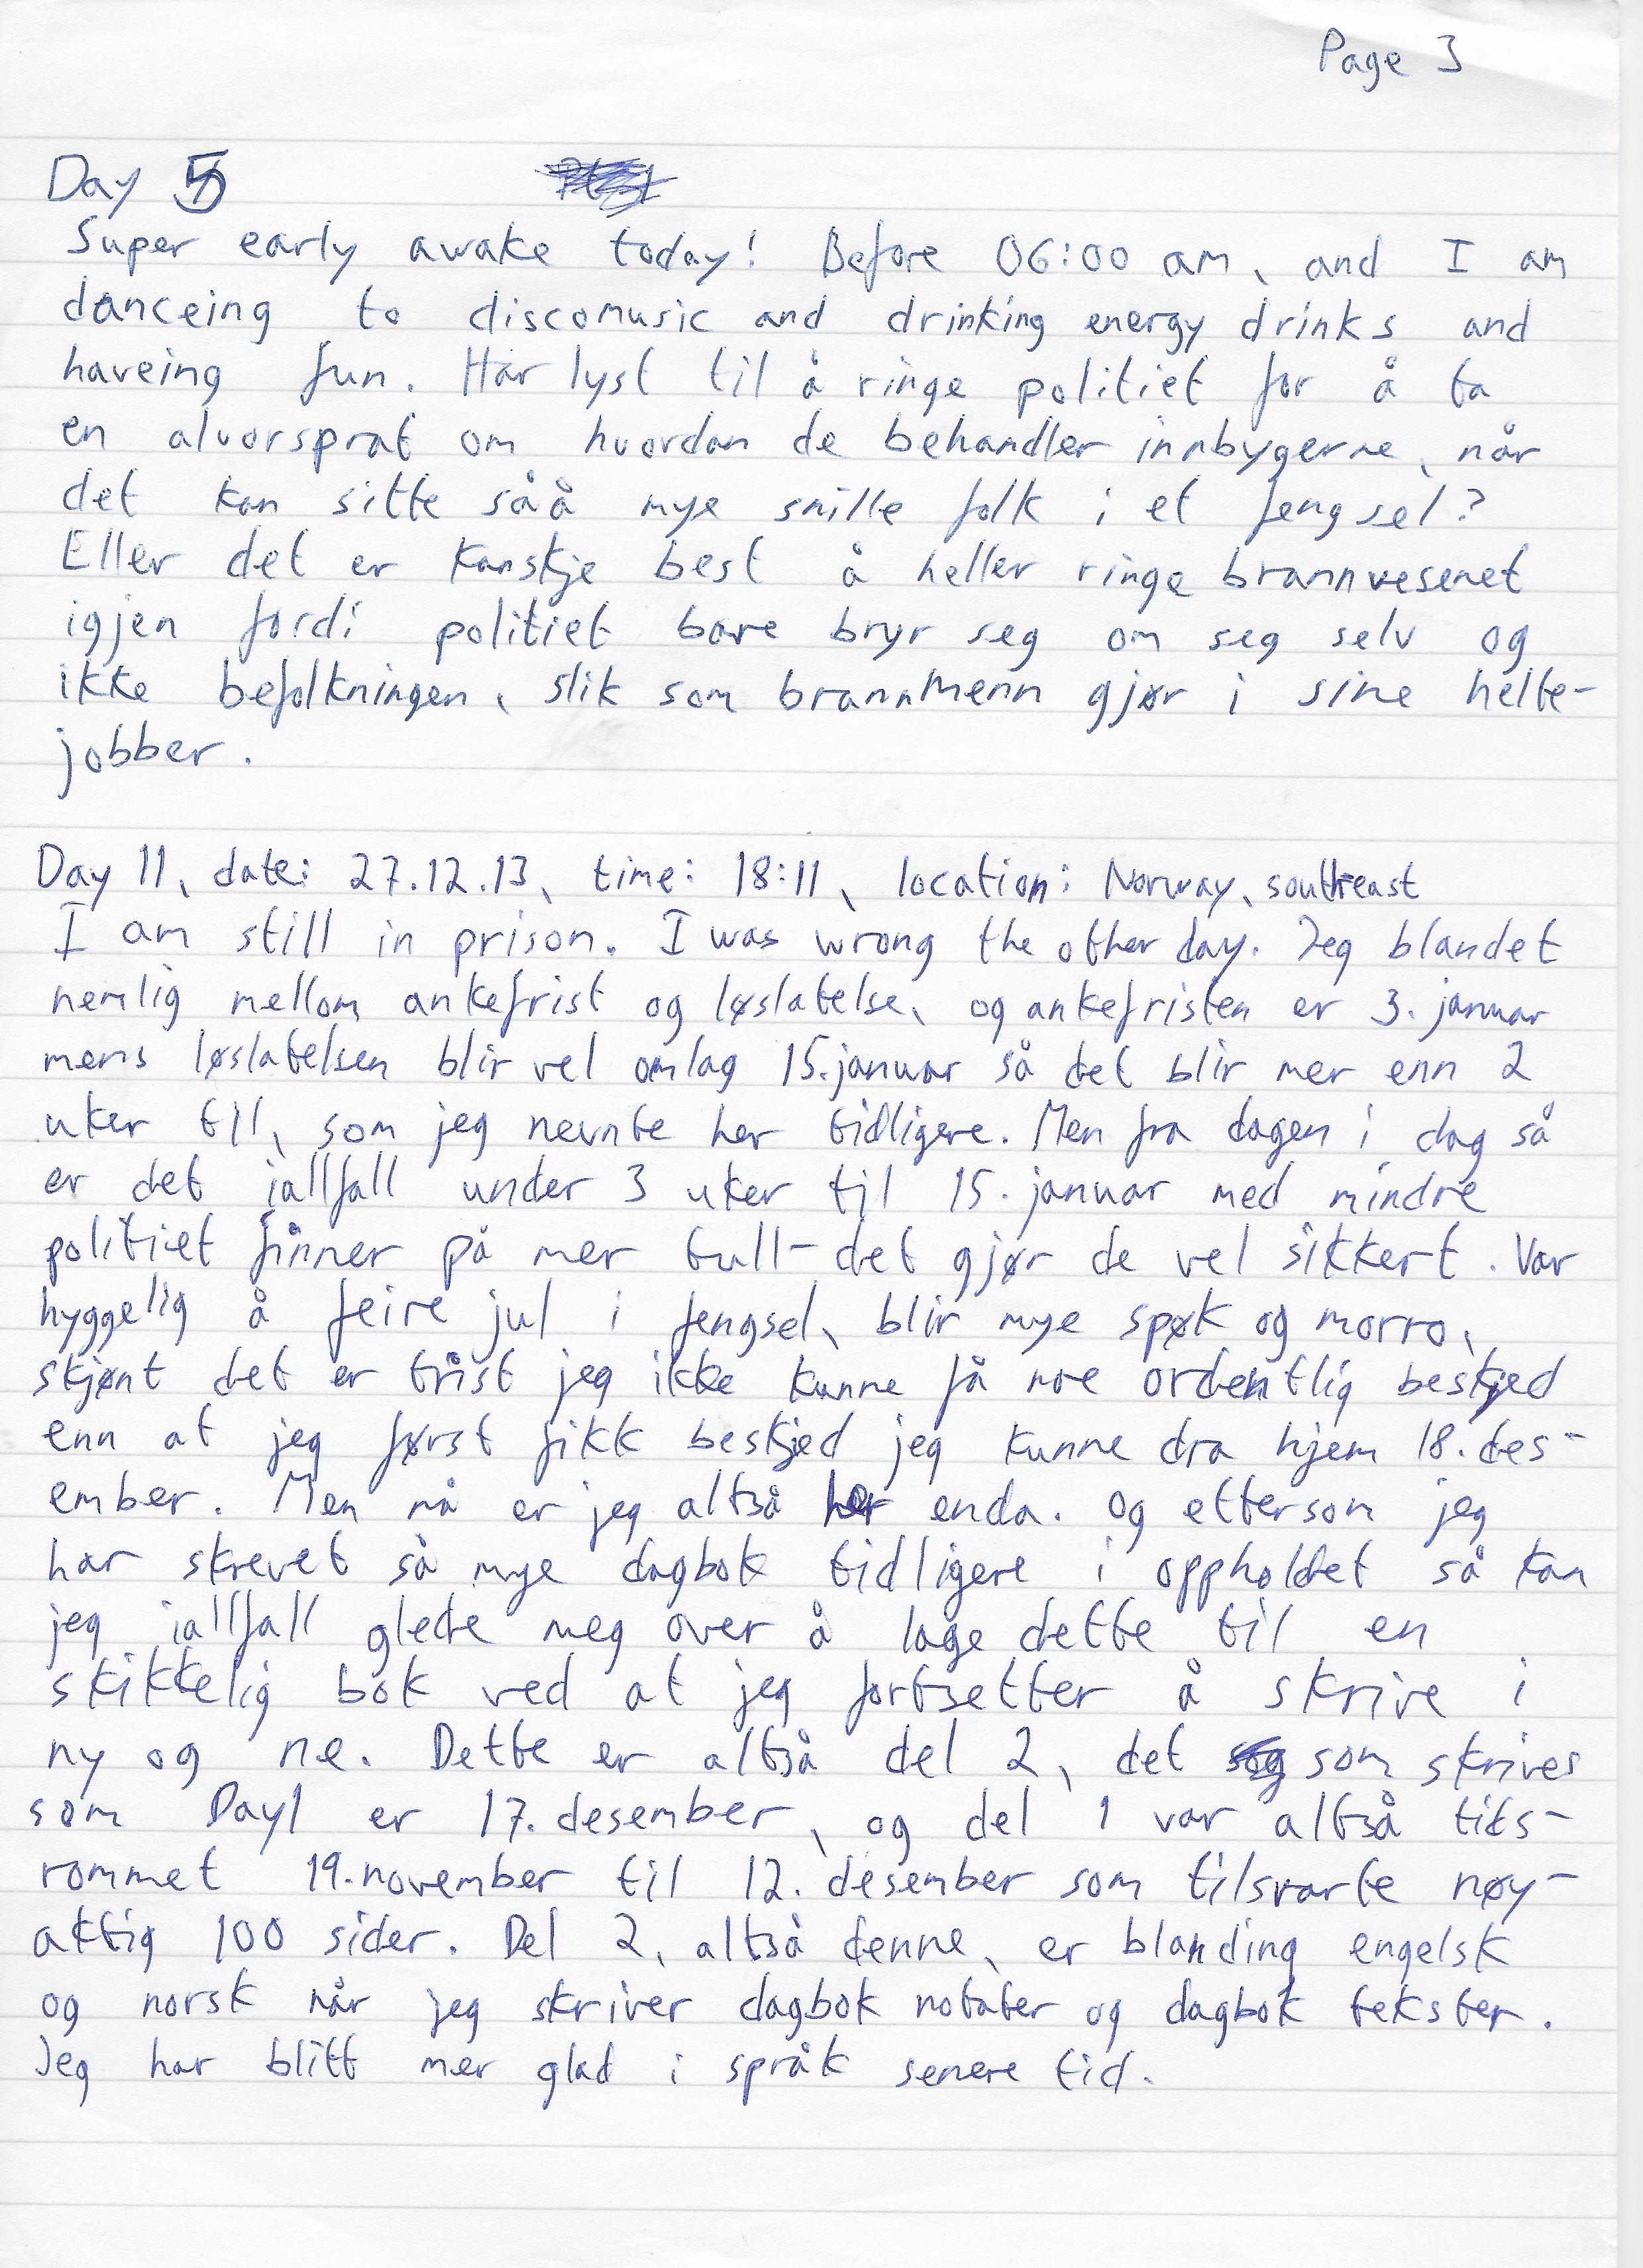 Page 3
Day 5
Super early awake today! Before 06:00 am, and I am
danceing to discomusic and drinking energy drinks and
haveing fun. Har lyst til å ringe politiet for å ta
en alvorsprat om hvordan de behandler innbygerne, når
det kan sitte såå mye snille folk i et fengsel?
Eller det er kanskje best å heller ringe brannvesenet
igjen fordi politiet bare bryr seg om seg selv og
ikke befolkningen, slik som brannmenn gjør i sine helte-
jobber.
Day 11, date: 27.12.13, time: 18:11, location: Norway, southeast
I am still in prison. I was wrong the other day. Jeg blandet
nemlig mellom ankefrist og løslatelse, og ankefristen er 3. januar
mens løslatelsen blir vel omlag 15. januar så det blir mer enn 2
uker til, som jeg nevnte her tidligere. Men fra dagen i dag så
er det iallfall under 3 uker til 15. januar med mindre
politiet finner på mer tull- det gjør de vel sikkert. Var
hyggelig å feire jul i fengsel, blir mye spøk og morro,
skjønt det er trist jeg ikke kunne få noe ordentlig beskjed
enn at jeg først fikk beskjed jeg kunne dra hjem 18. des-
ember. Men nå er jeg altså her enda. Og ettersom jeg
har skrevet så mye dagbok tidligere i oppholdet så kan
jeg iallfall glede meg over å lage dette til en
skikkelig bok ved at jeg fortsetter å skrive i
ny og ne. Dette er altså del 2, det som skrives
som Day1 er 17. desember, og del 1 var altså tids-
rommet 19. november til 12. desember som tilsvarte nøy-
aktig 100 sider. Del 2, altså denne, er blanding engelsk
og norsk når jeg skriver dagbok notater og dagbok tekster.
Jeg har blitt mer glad i språk senere tid.